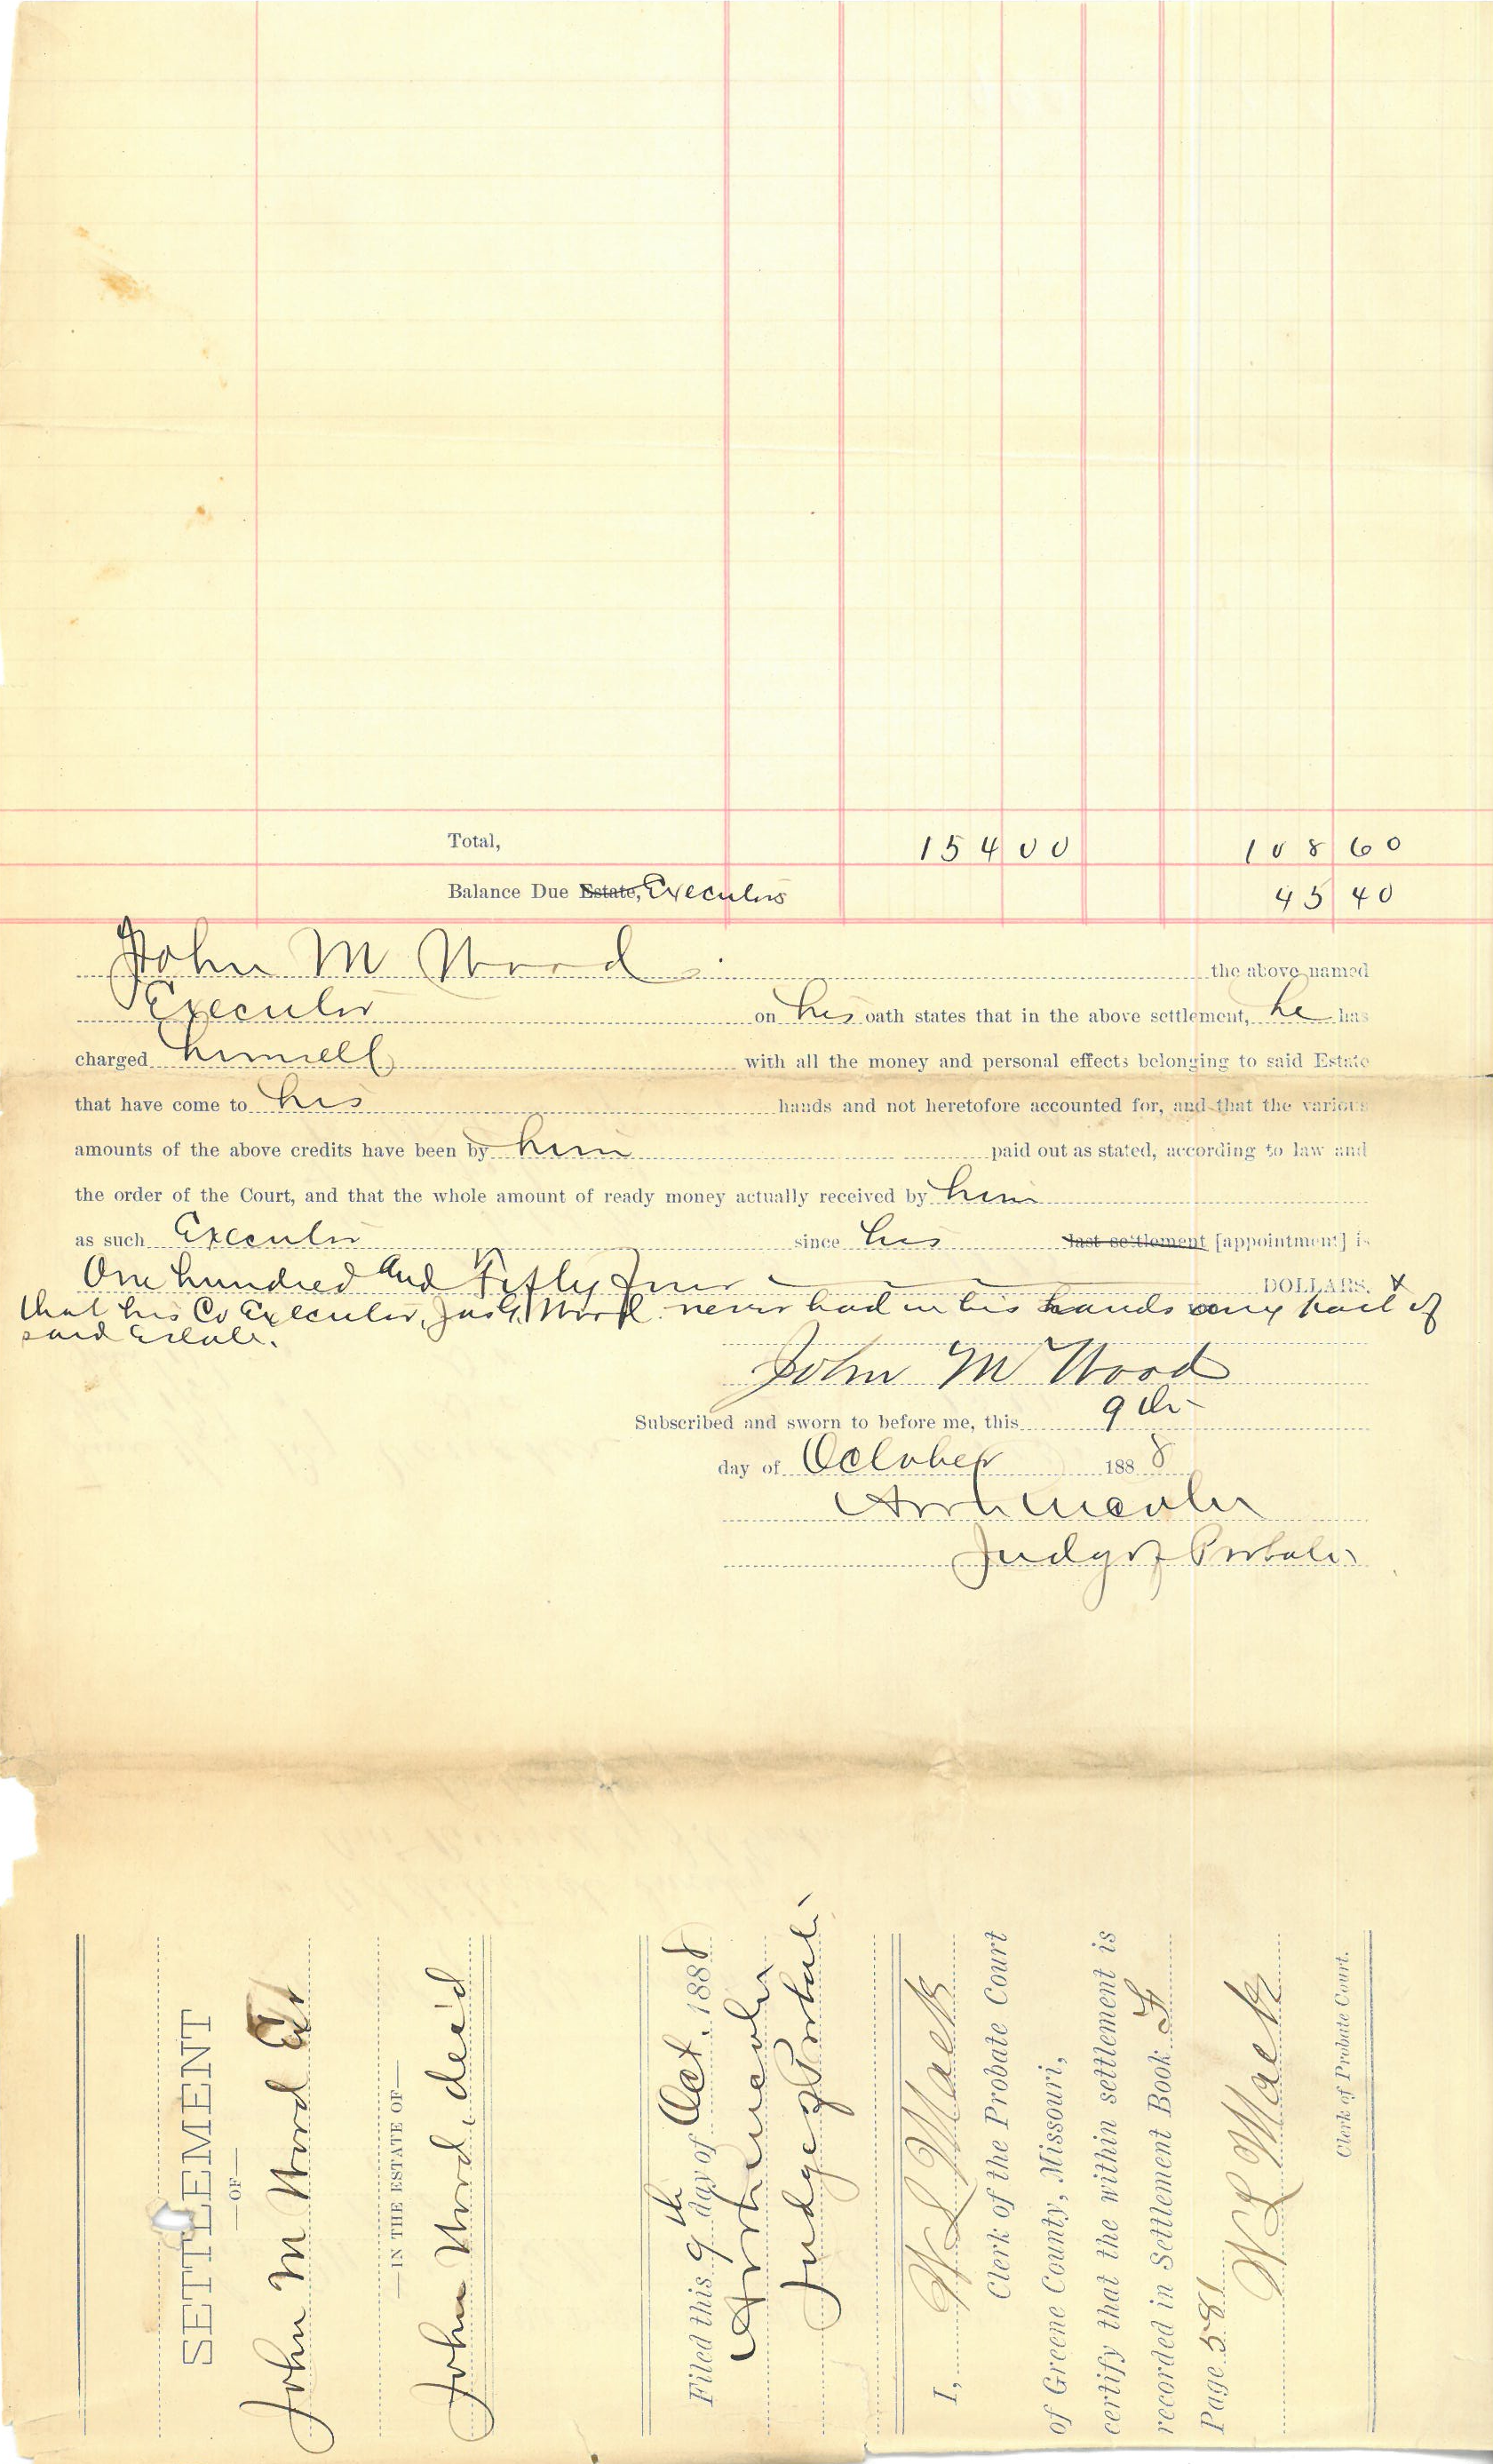 Total, 154 00 108 60
Balance Due Estate, Executors 45 40
John M Wood the above named
Executor on his oath states that in the above settlement, he has
charged himself with all the money and personal effects belonging to said Estate
that have come to his hands and not heretofore accounted for, and that the various
amounts of the above credits have been by him paid out as stated, according to law and
the order of the Court, and that the whole amount of ready money actually received by him
as such Executor since his last settlement [appointment] is
One hundred and Fifty Four DOLLARS. &
that his Co Executor, Wood never had in his hands any part of
said Estate.
John M Wood
Subscribed and sworn to before me, this 9th
day of October 1888
Judge of Probate
SETTLEMENT
—OF—
John M Wood Exr
—IN THE ESTATE OF—
John Wood, dec'd
Filed this 9th day of Oct. 1888
Judge of Probate
I, W L Mack
Clerk of the Probate Court
of Greene County, Missouri,
certify that the within settlement is
recorded in Settlement Book F
Page 581
W L Mack
Clerk of Probate Court.